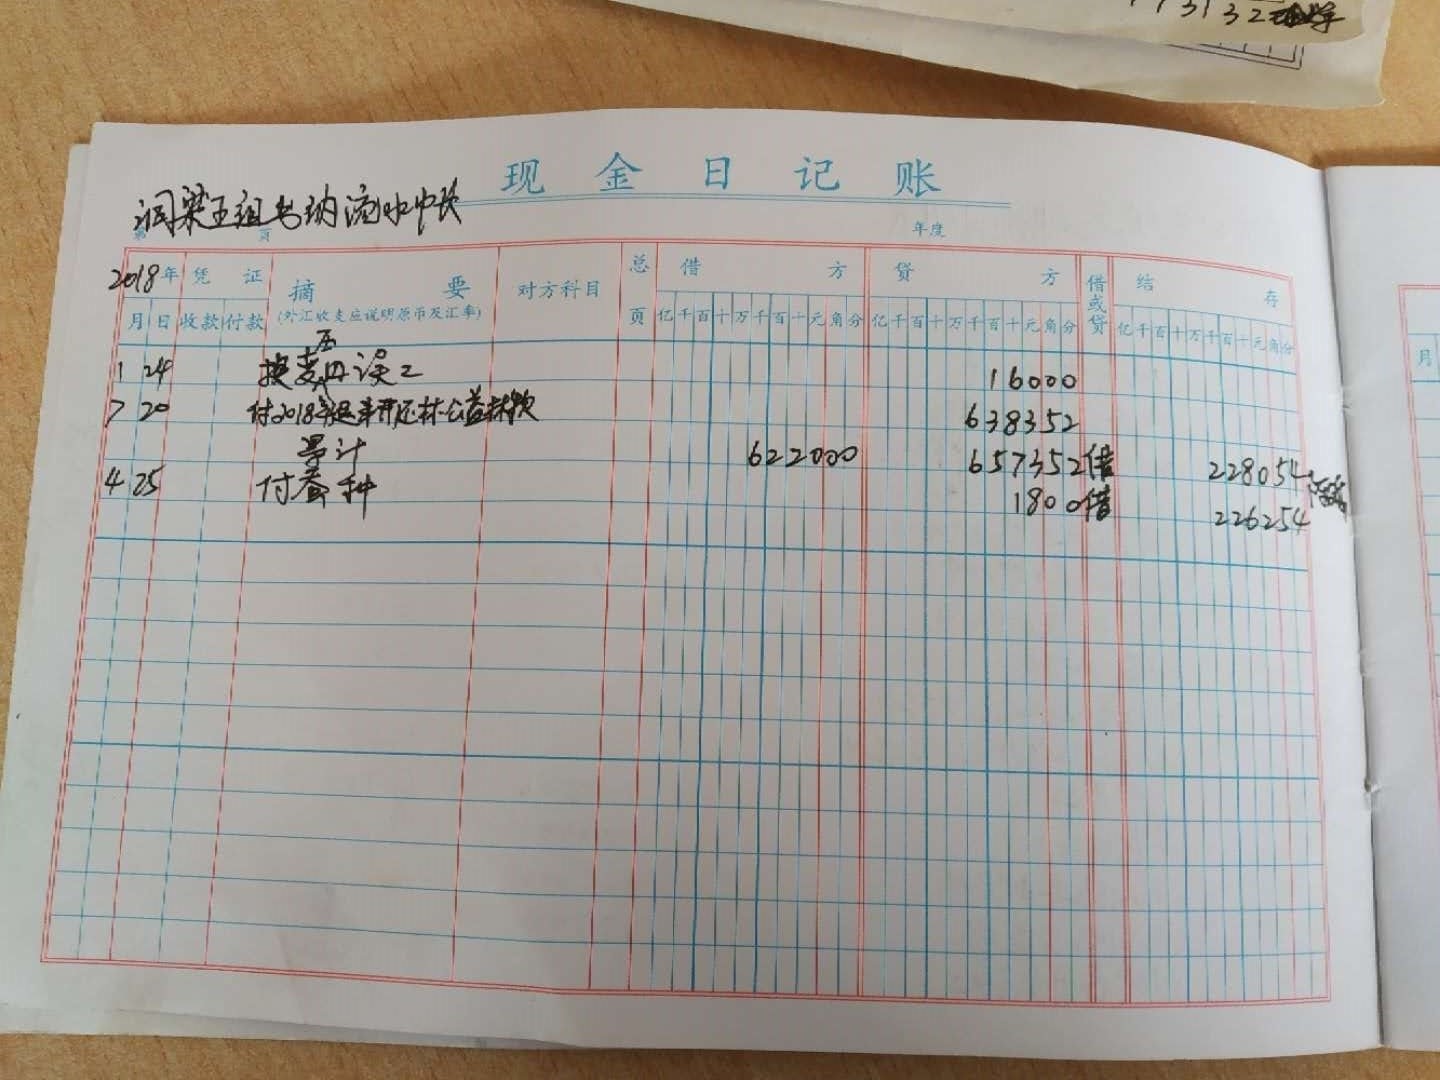 73132
现金日记账
组出纳流水账
第 页
年度
2018年 凭证 摘要 对方科目 总页 借方 贷方 借或贷 结存
月 日 收款 付款 (外汇收支应说明原币及汇率) 亿千百十万千百十元角分 亿千百十万千百十元角分 亿千百十万千百十元角分
1 24 误工 16000
7 20 付2018年退耕还林公益林款 638352
累计 622000 657352 借 228054
4 25 付蚕种 1800 借 226254
月